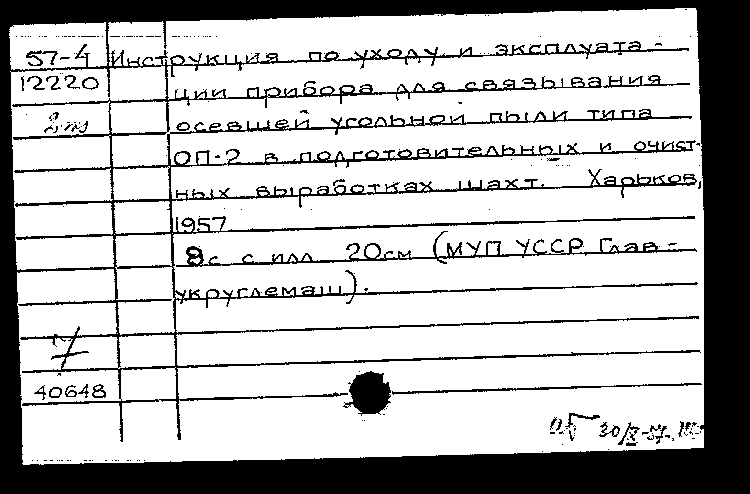 57-4 Инструкция по уходу и эксплуата-
12220 ции прибора для связывания
2 экз осевшей угольной пыли типа
ОП-2 в подготовительных и очист-
ных выработках шахт. Харьков,
1957
8с с илл 20см (МУП УССР. Глав-
укруглемаш).
40648
30/X-57.